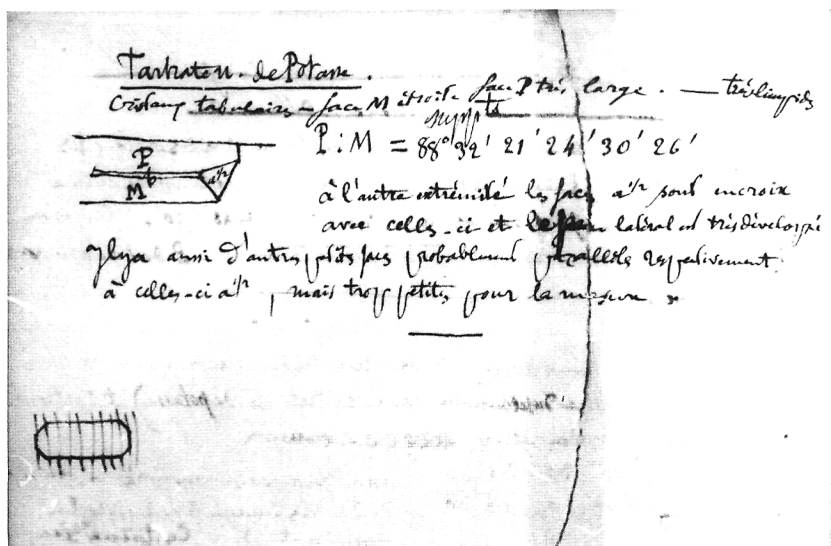 Tartraten. de Potasse.
Cristaux tabulaires, face M étroite face P très large. — très limpides
suppts
P : M = 88° 32' 21' 24' 30' 26'
P
b a½
M
à l'autre extrémité les faces a½ sont en croix
avec celles-ci et le pan latéral est très développé
Il y a aussi d'autres petites faces probablement parallèles respectivement
à celles-ci a½, mais trop petites pour la mesure